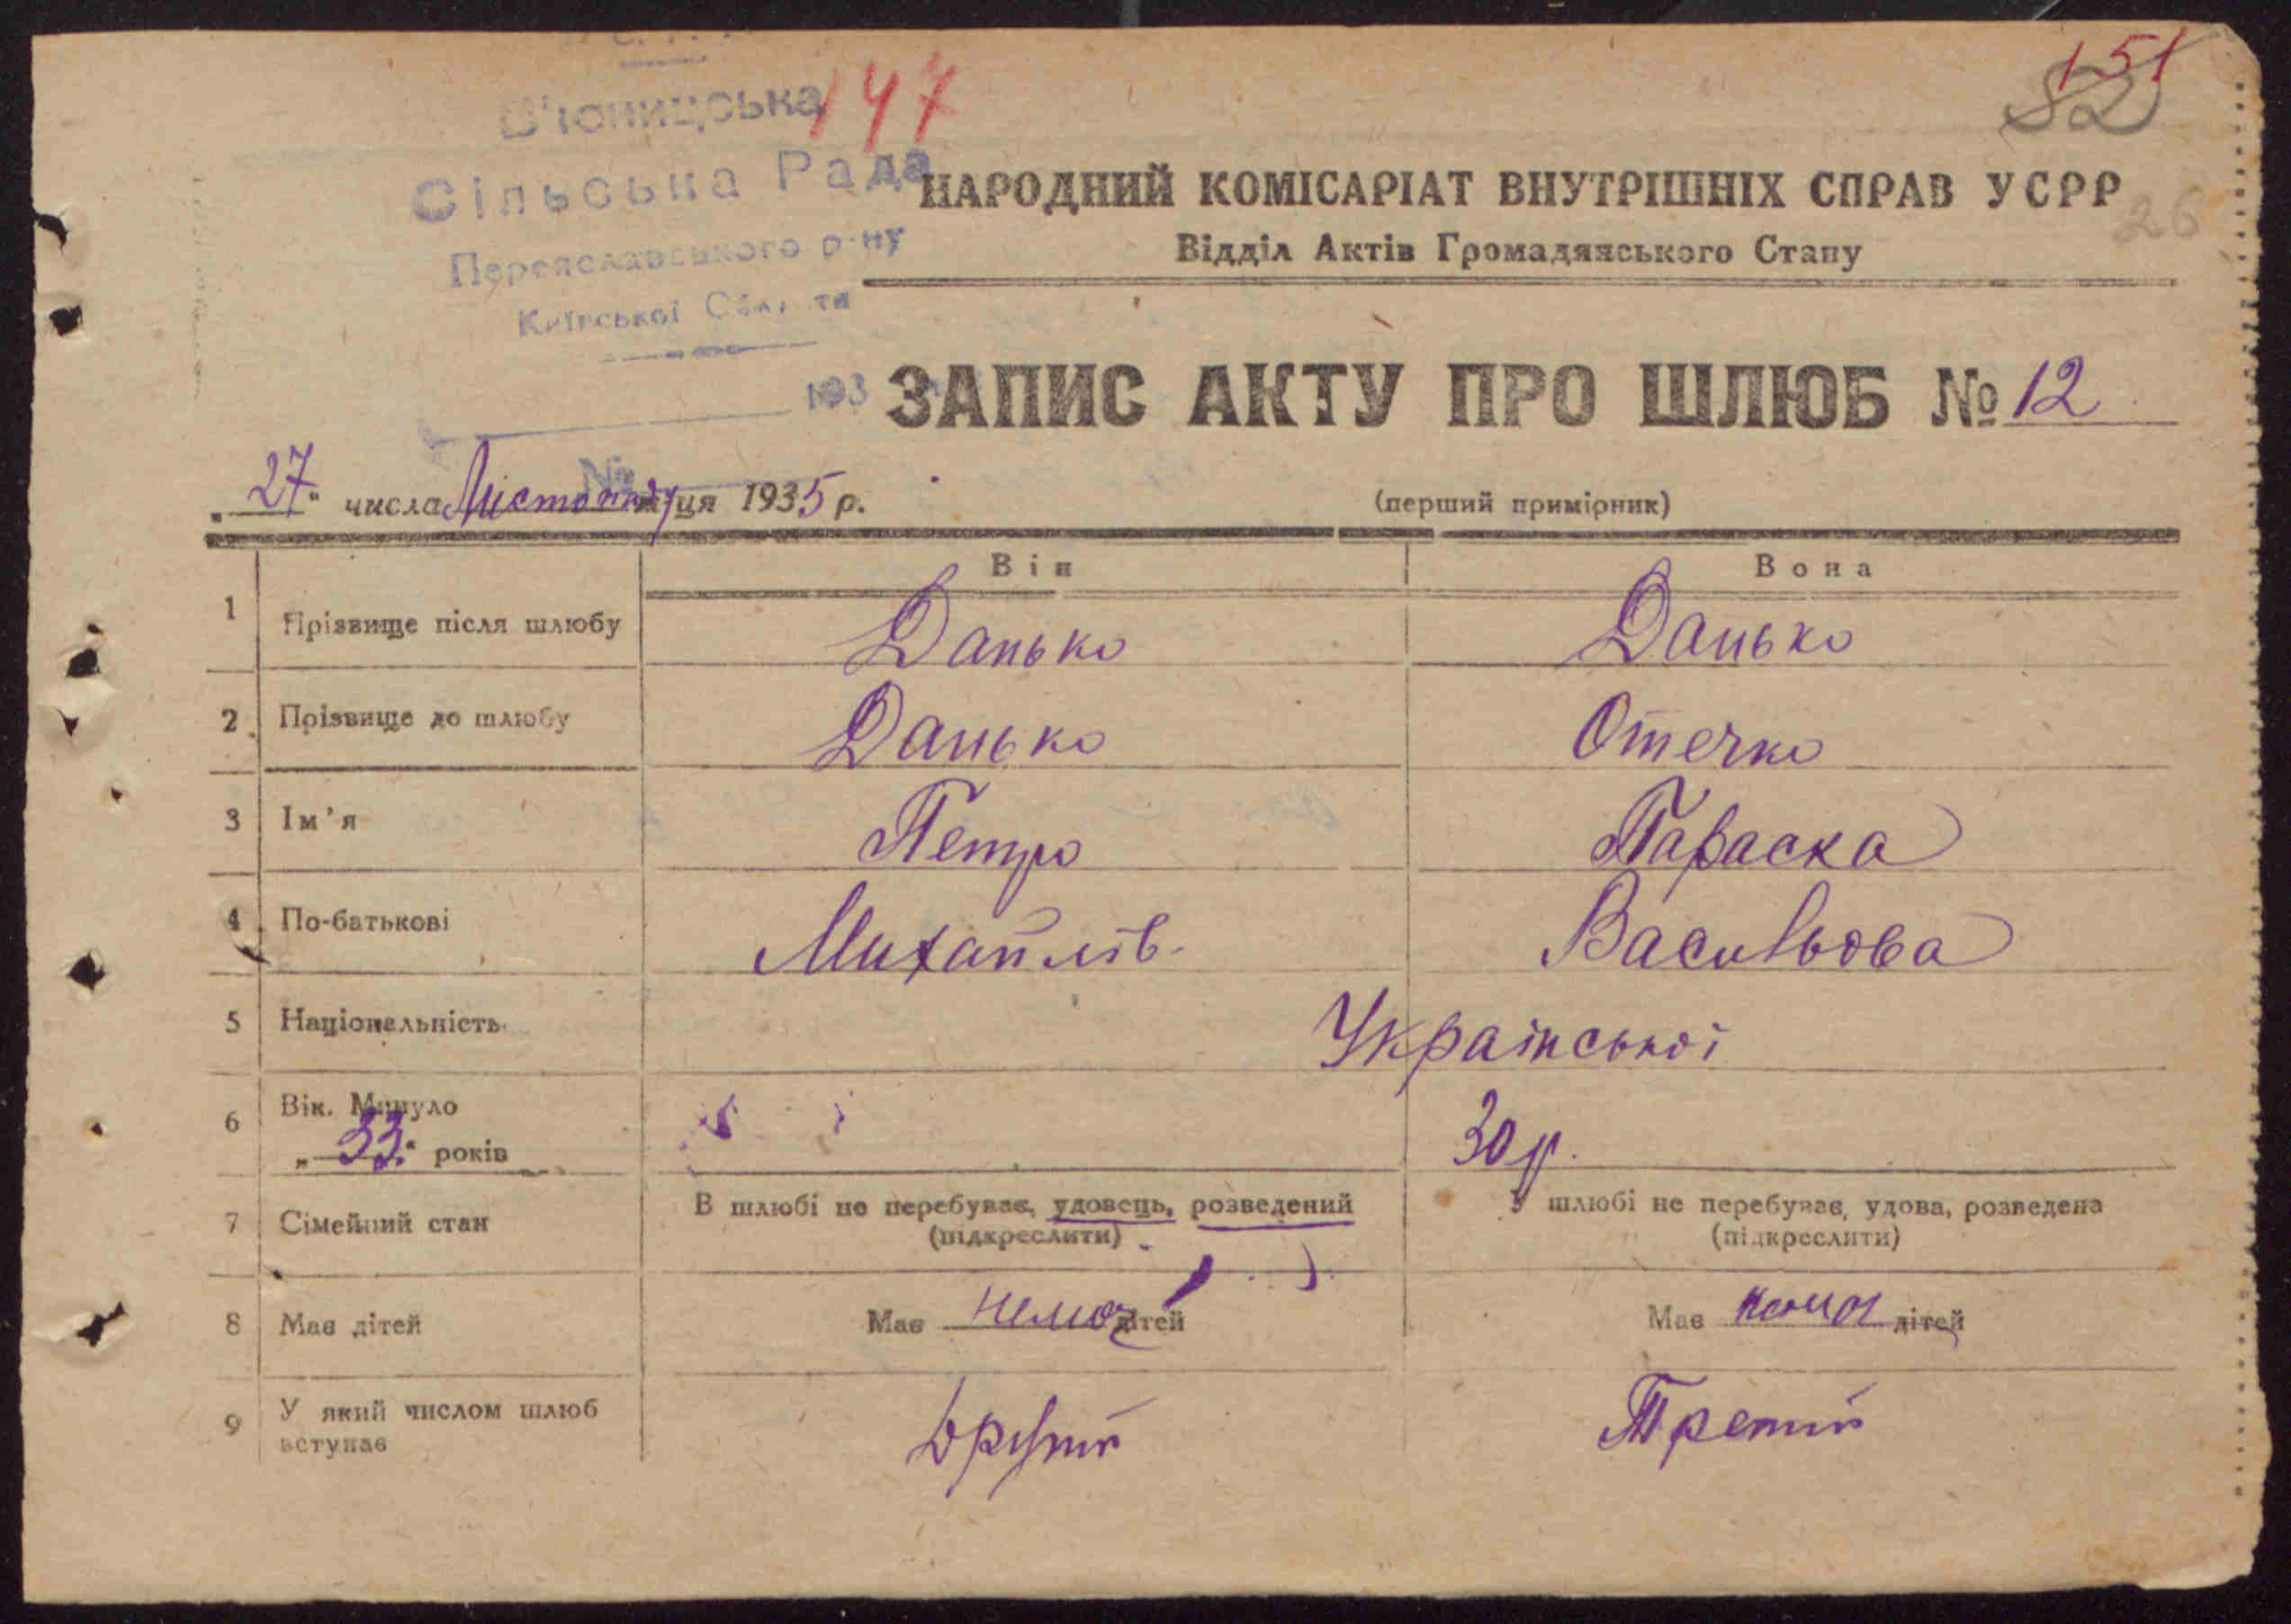 151
147
82
В'юницька
Сільська Рада
Переяславського р-ну
Київської Області
193
№
НАРОДНИЙ КОМІСАРІАТ ВНУТРІШНІХ СПРАВ УСРР
26
Відділ Актів Громадянського Стану
ЗАПИС АКТУ ПРО ШЛЮБ № 12
„27" числа Листопаду м-ця 1935 р.
(перший примірник)
Він Вона
1 Прізвище після шлюбу Данько Данько
2 Прізвище до шлюбу Данько Отечко
3 Ім'я Петро Параска
4 По-батькові Михайлів Васильова
5 Національність Української
6 Вік. Минуло
„33" років 30 р.
7 Сімейний стан В шлюбі не перебуває, удовець, розведений У шлюбі не перебуває, удова, розведена
(підкреслити) (підкреслити)
8 Має дітей Має нема дітей Має нема дітей
9 У який числом шлюб
вступає Другий Третій